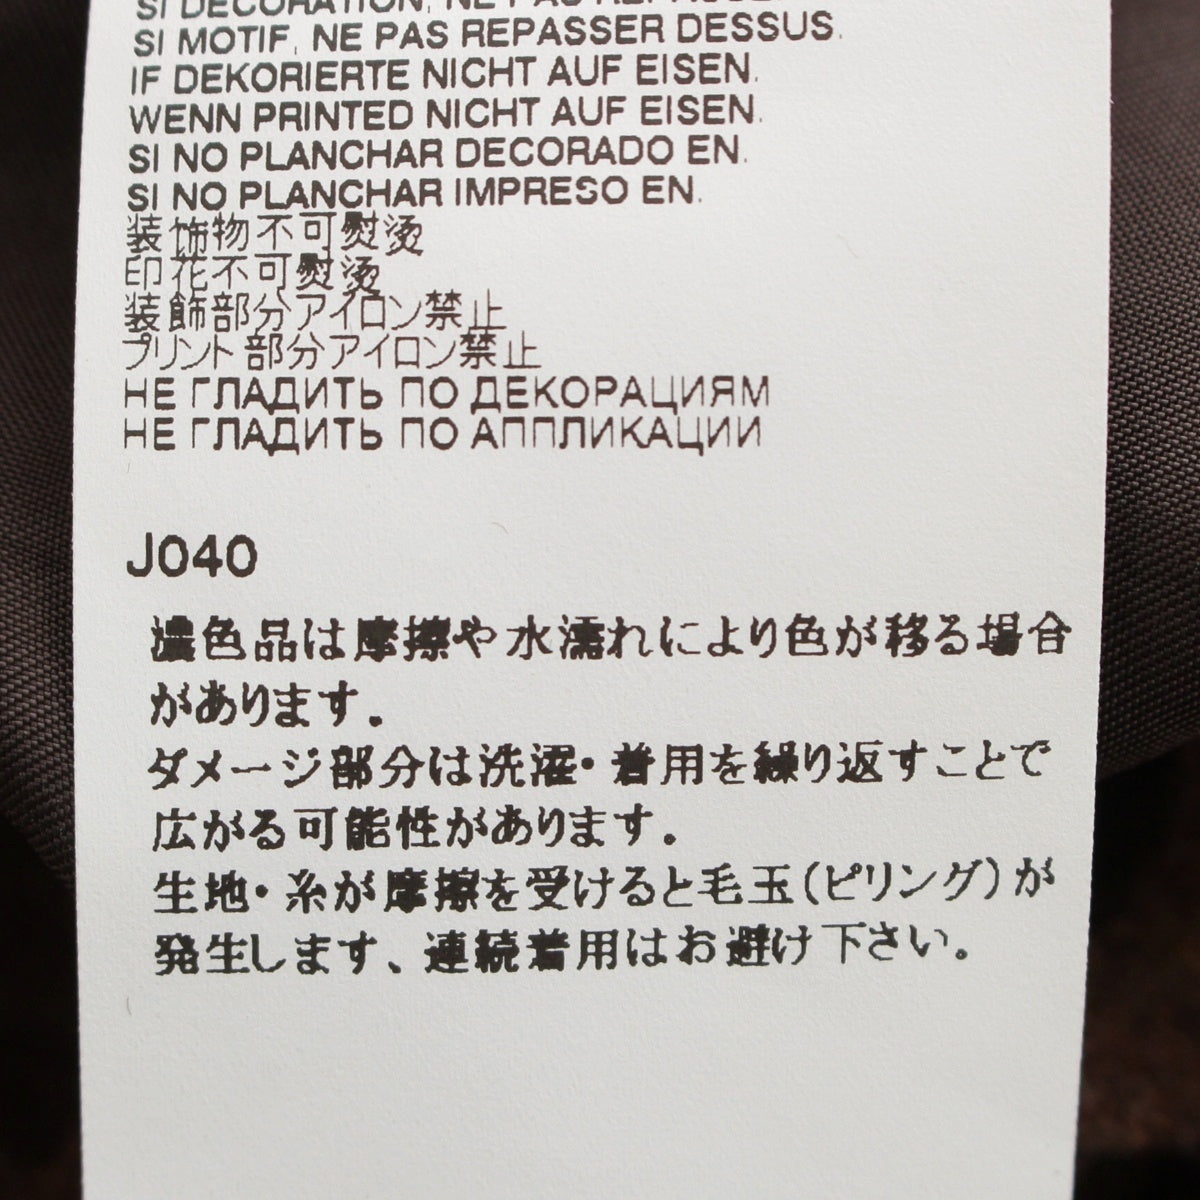 SI DÉCORATION, NE PAS REPASSER
SI MOTIF, NE PAS REPASSER DESSUS.
IF DEKORIERTE NICHT AUF EISEN.
WENN PRINTED NICHT AUF EISEN.
SI NO PLANCHAR DECORADO EN.
SI NO PLANCHAR IMPRESO EN.
装饰物不可熨烫
印花不可熨烫
装飾部分アイロン禁止
プリント部分アイロン禁止
НЕ ГЛАДИТЬ ПО ДЕКОРАЦИЯМ
НЕ ГЛАДИТЬ ПО АППЛИКАЦИИ
J040
濃色品は摩擦や水濡れにより色が移る場合
があります。
ダメージ部分は洗濯・着用を繰り返すことで
広がる可能性があります。
生地・糸が摩擦を受けると毛玉(ピリング)が
発生します、連続着用はお避け下さい。